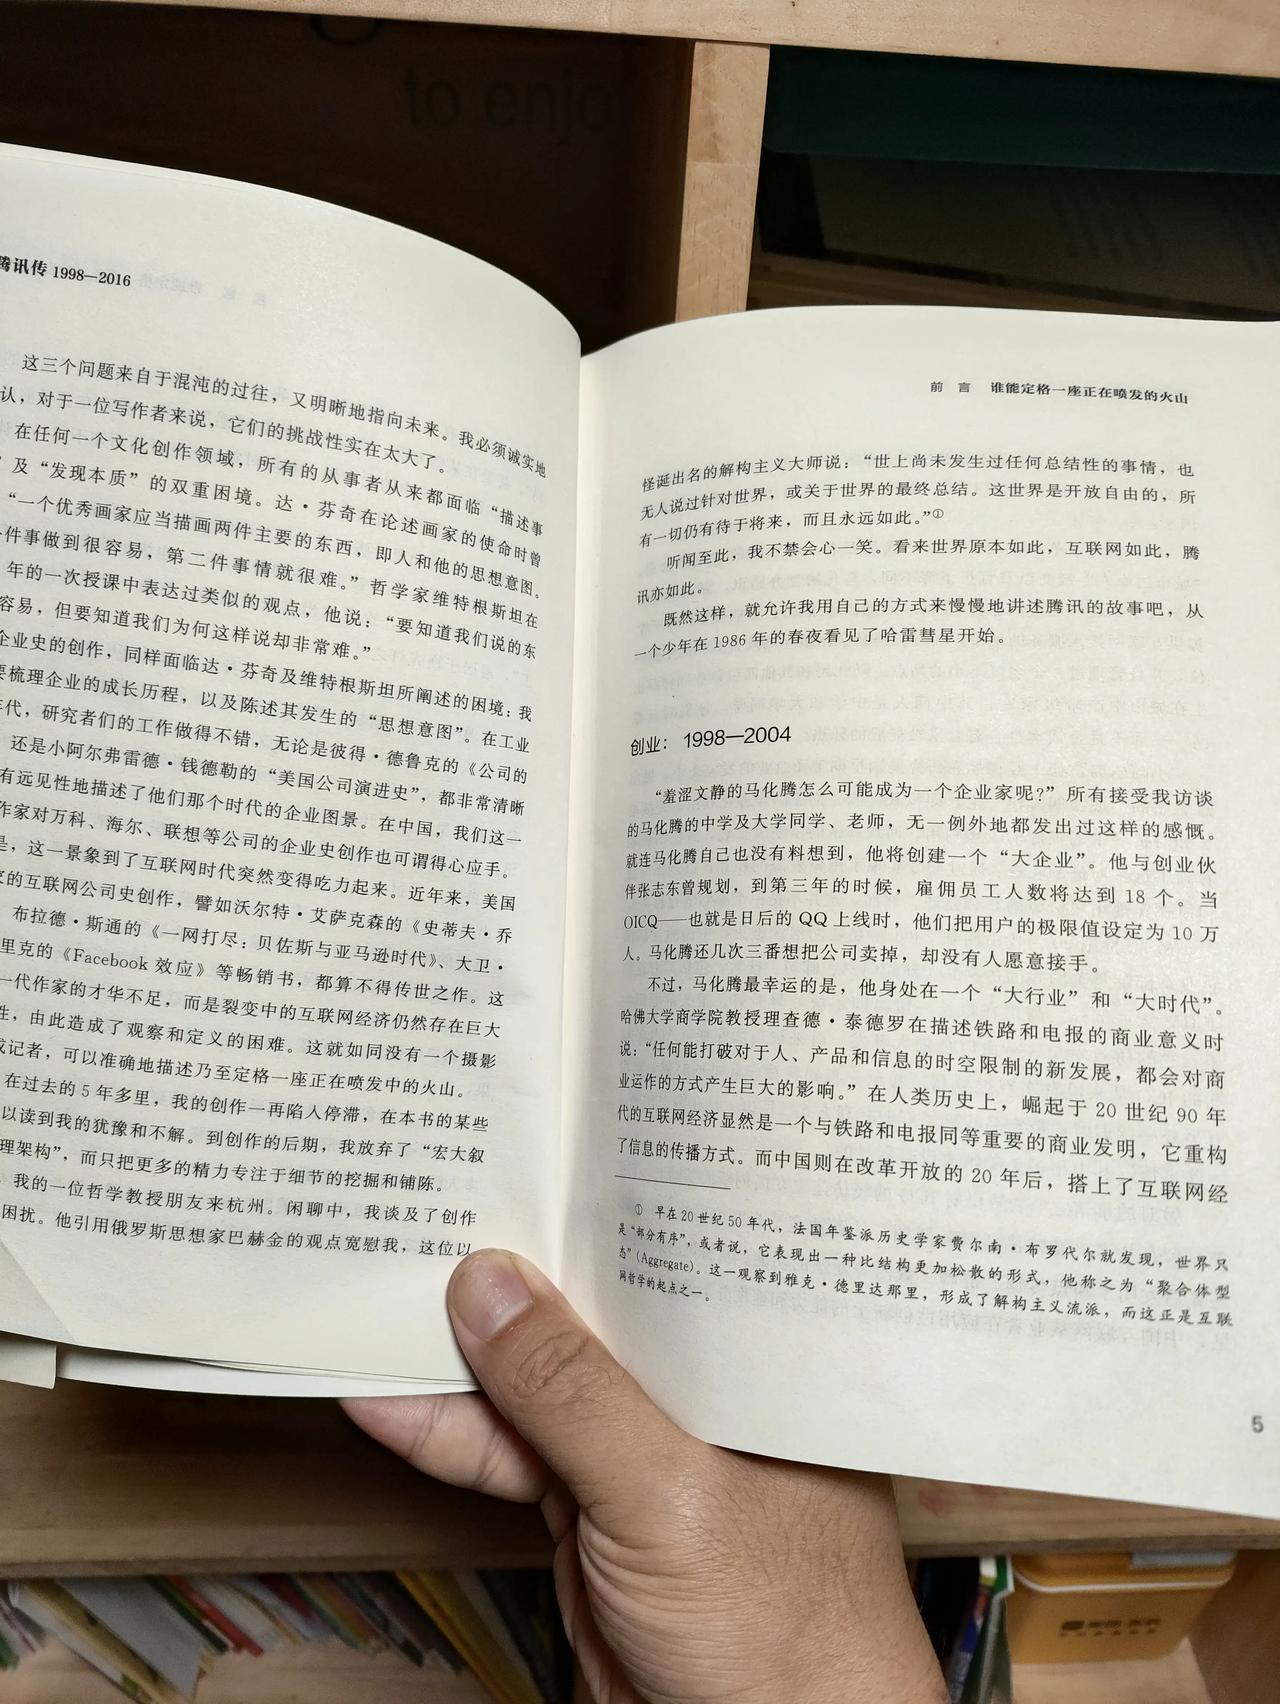 to enjo
腾讯传 1998—2016
这三个问题来自于混沌的过往，又明晰地指向未来。我必须诚实地
认，对于一位写作者来说，它们的挑战性实在太大了。
在任何一个文化创作领域，所有的从事者从来都面临“描述事
”及“发现本质”的双重困境。达·芬奇在论述画家的使命时曾
“一个优秀画家应当描画两件主要的东西，即人和他的思想意图。
件事做到很容易，第二件事情就很难。”哲学家维特根斯坦在
年的一次授课中表达过类似的观点，他说：“要知道我们说的东
容易，但要知道我们为何这样说却非常难。”
企业史的创作，同样面临达·芬奇及维特根斯坦所阐述的困境：我
要梳理企业的成长历程，以及陈述其发生的“思想意图”。在工业
年代，研究者们的工作做得不错，无论是彼得·德鲁克的《公司的
还是小阿尔弗雷德·钱德勒的“美国公司演进史”，都非常清晰
有远见性地描述了他们那个时代的企业图景。在中国，我们这一
作家对万科、海尔、联想等公司的企业史创作也可谓得心应手。
是，这一景象到了互联网时代突然变得吃力起来。近年来，美国
家的互联网公司史创作，譬如沃尔特·艾萨克森的《史蒂夫·乔
布拉德·斯通的《一网打尽：贝佐斯与亚马逊时代》、大卫·
里克的《Facebook 效应》等畅销书，都算不得传世之作。这
一代作家的才华不足，而是裂变中的互联网经济仍然存在巨大
性，由此造成了观察和定义的困难。这就如同没有一个摄影
或记者，可以准确地描述乃至定格一座正在喷发中的火山。
在过去的 5 年多里，我的创作一再陷入停滞，在本书的某些
以读到我的犹豫和不解。到创作的后期，我放弃了“宏大叙
理架构”，而只把更多的精力专注于细节的挖掘和铺陈。
我的一位哲学教授朋友来杭州。闲聊中，我谈及了创作
困扰。他引用俄罗斯思想家巴赫金的观点宽慰我，这位以
前 言 谁能定格一座正在喷发的火山
怪诞出名的解构主义大师说：“世上尚未发生过任何总结性的事情，也
无人说过针对世界，或关于世界的最终总结。这世界是开放自由的，所
有一切仍有待于将来，而且永远如此。”①
听闻至此，我不禁会心一笑。看来世界原本如此，互联网如此，腾
讯亦如此。
既然这样，就允许我用自己的方式来慢慢地讲述腾讯的故事吧，从
一个少年在 1986 年的春夜看见了哈雷彗星开始。
创业：1998—2004
“羞涩文静的马化腾怎么可能成为一个企业家呢？”所有接受我访谈
的马化腾的中学及大学同学、老师，无一例外地都发出过这样的感慨。
就连马化腾自己也没有料想到，他将创建一个“大企业”。他与创业伙
伴张志东曾规划，到第三年的时候，雇佣员工人数将达到 18 个。当
OICQ——也就是日后的 QQ 上线时，他们把用户的极限值设定为 10 万
人。马化腾还几次三番想把公司卖掉，却没有人愿意接手。
不过，马化腾最幸运的是，他身处在一个“大行业”和“大时代”。
哈佛大学商学院教授理查德·泰德罗在描述铁路和电报的商业意义时
说：“任何能打破对于人、产品和信息的时空限制的新发展，都会对商
业运作的方式产生巨大的影响。”在人类历史上，崛起于 20 世纪 90 年
代的互联网经济显然是一个与铁路和电报同等重要的商业发明，它重构
了信息的传播方式。而中国则在改革开放的 20 年后，搭上了互联网经
① 早在 20 世纪 50 年代，法国年鉴派历史学家费尔南·布罗代尔就发现，世界只
是“部分有序”，或者说，它表现出一种比结构更加松散的形式，他称之为“聚合体型
态”（Aggregate）。这一观察到雅克·德里达那里，形成了解构主义流派，而这正是互联
网哲学的起点之一。
5